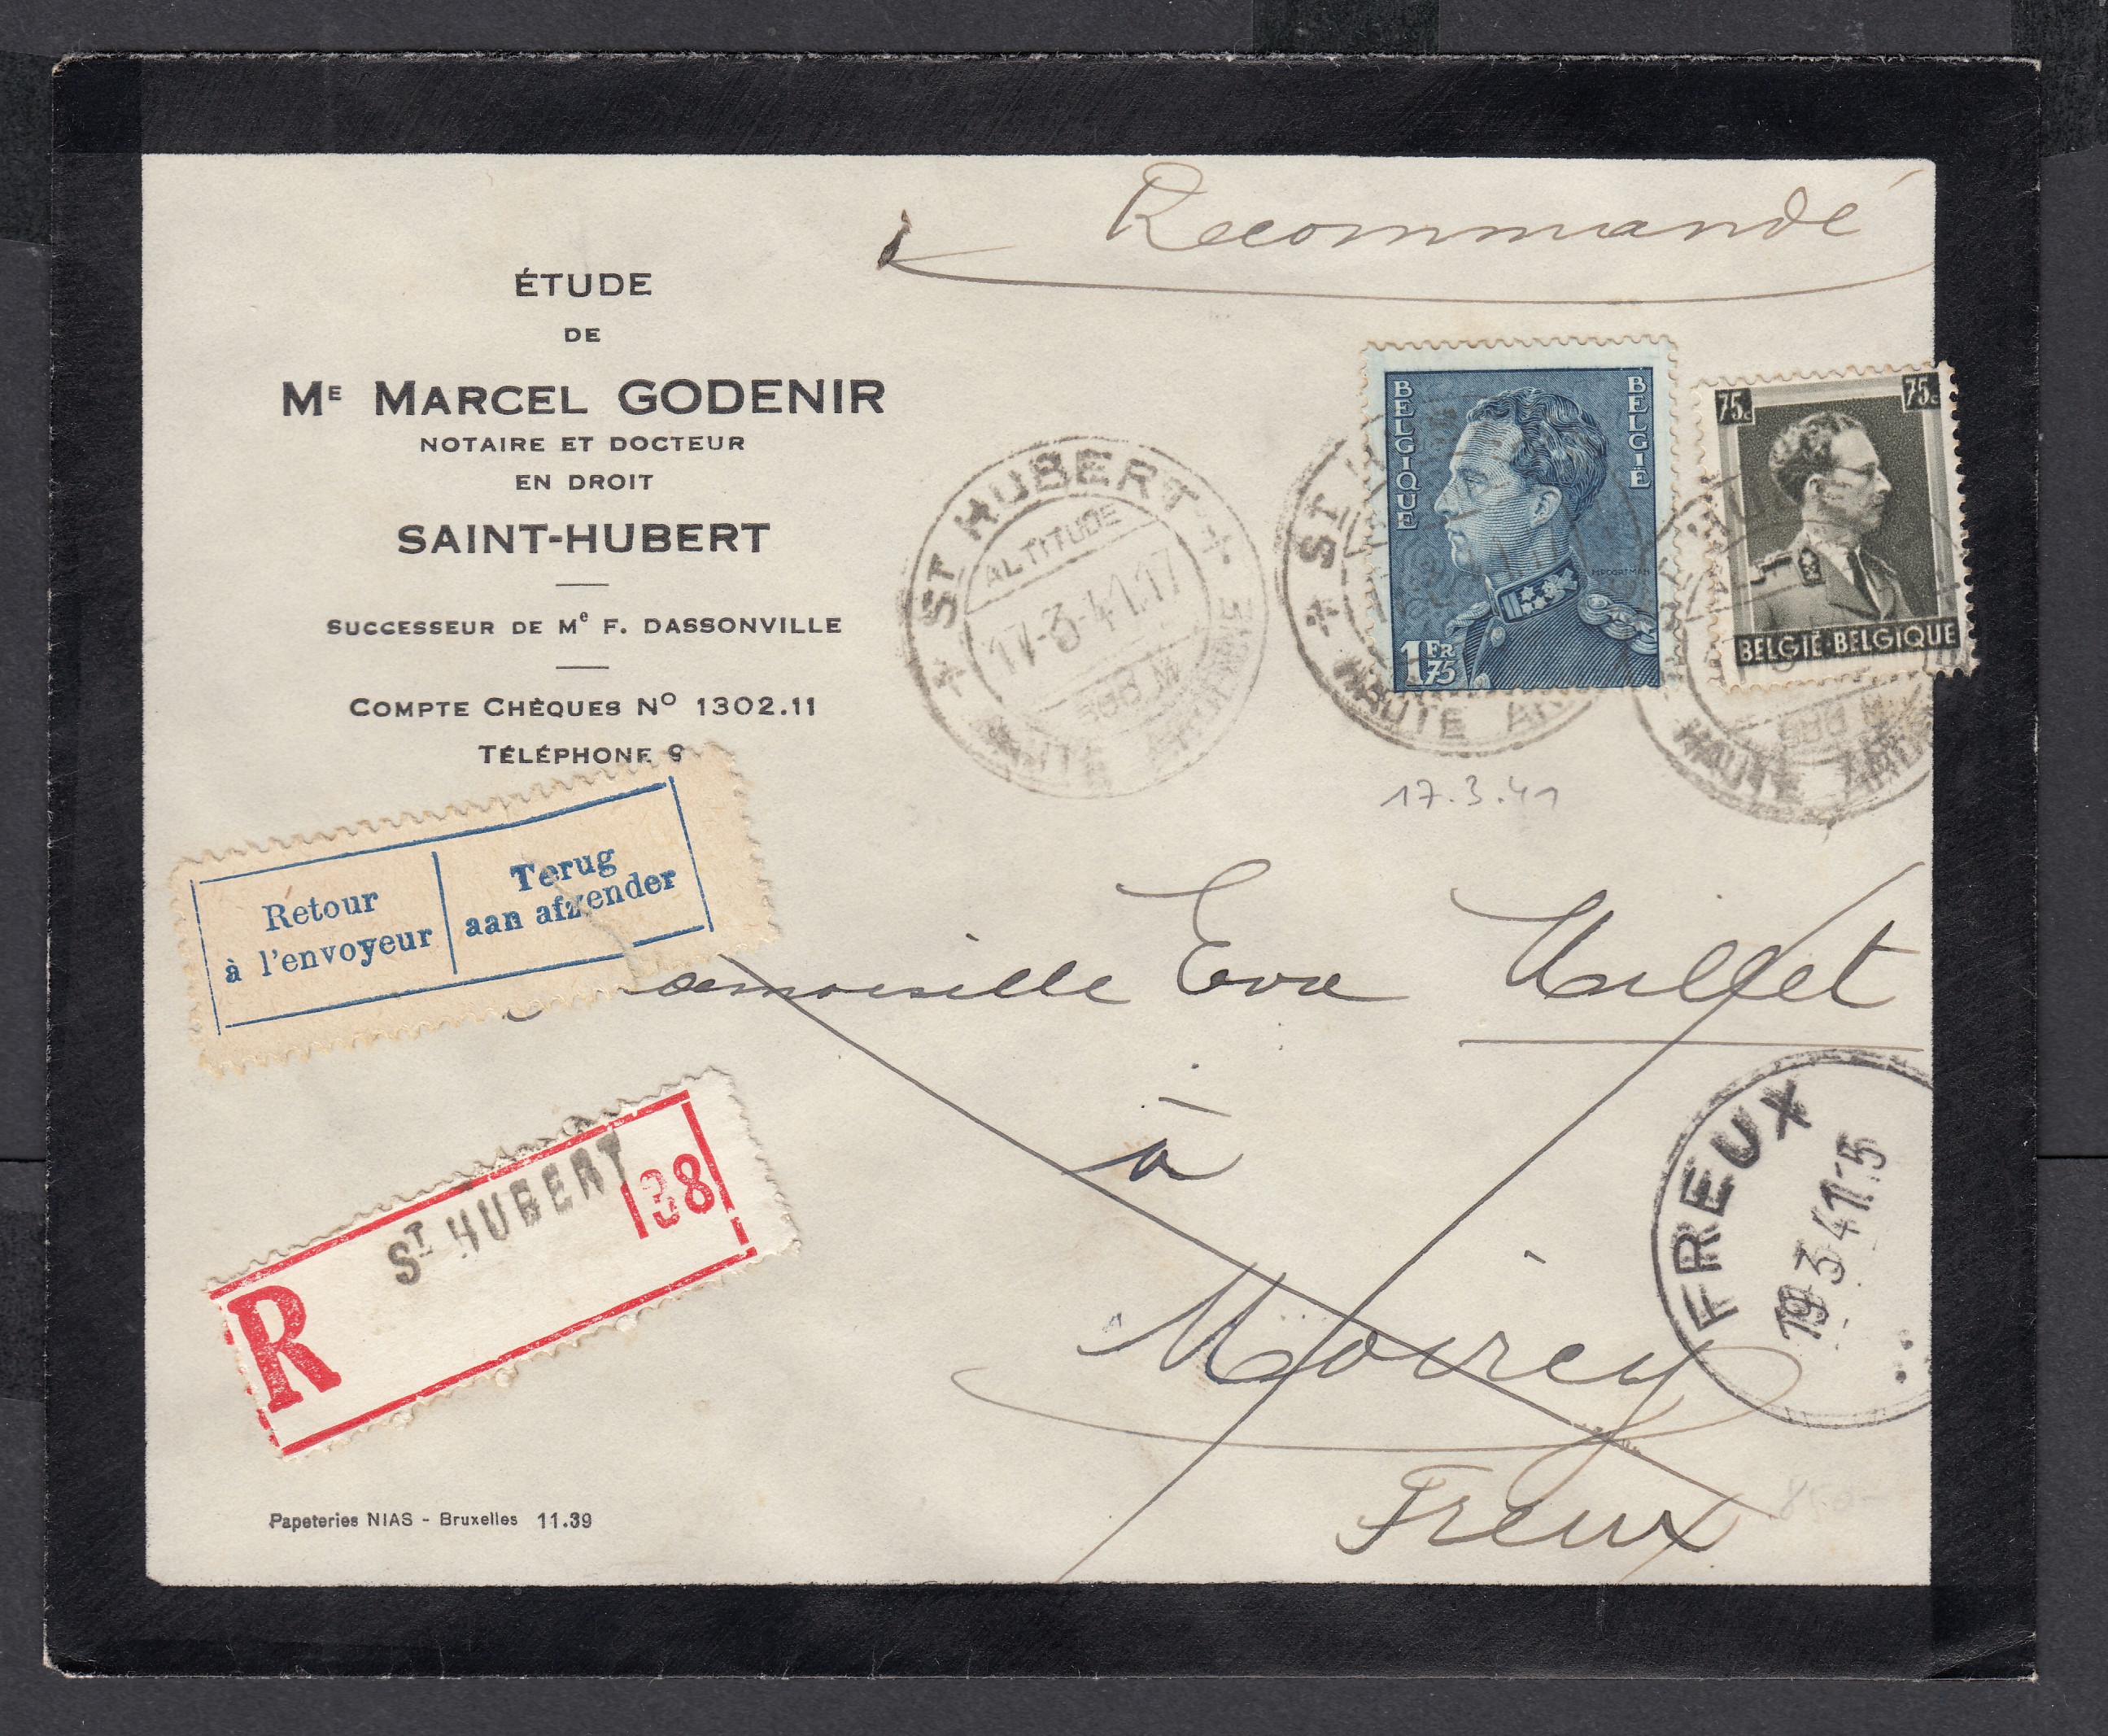 Recommandé
ÉTUDE
DE
ME MARCEL GODENIR
NOTAIRE ET DOCTEUR
EN DROIT
SAINT-HUBERT
SUCCESSEUR DE Me F. DASSONVILLE
COMPTE CHÈQUES No 1302.11
TÉLÉPHONE 9
ST HUBERT
ALTITUDE
17-3-41.17
HAUTE ARDENNE
BELGIQUE
BELGIË
MPOORTMAN
1 FR 75
ST
HAUTE AR
75c
75c
BELGIË-BELGIQUE
HAUTE ARDE
17.3.41
Retour
à l'envoyeur
Terug
aan afzender
emoiselle Eva
à
Moircy
Freux
FREUX
19 3 41 15
R
ST HUBERT
38
Papeteries NIAS - Bruxelles 11.39